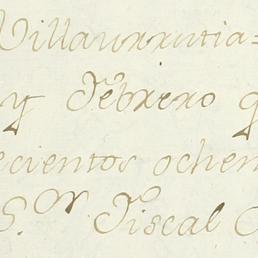 Villaurrutia=
y Febrero
ecientos ochen
S.or Fiscal